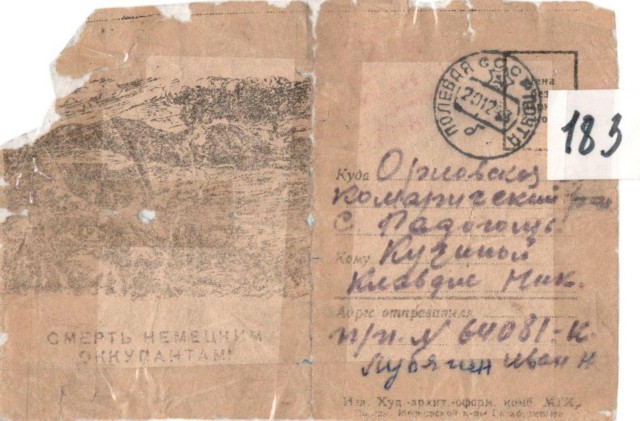 СМЕРТЬ НЕМЕЦКИМ
ОККУПАНТАМ!
ПОЛЕВАЯ ПОЧТА
СССР
20 12 43
б
183
Куда Орловская
Комаричский
с. Радогощь
Кому Кузиной
Клавдие Ник.
Адрес отправителя
п/п. № 64081-К
Лубягин Иван Н
Изд. Худ.-архит.-оформ. комб.